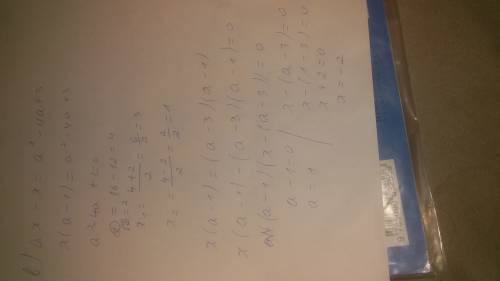 b) ax - x = a² - 4a + 3
x(a-1) = a² - 4a + 3
D = 16 - 12 = 4
x₁ = (4+2)/2 = 6/2 = 3
x₂ = (4-2)/2 = 2/2 = 1
x(a-1) = (a-3)(a-1)
x(a-1) - (a-3)(a-1) = 0
(a-1)(x-(a-3)) = 0
a-1=0 / x-(a-3)=0
a=1 x-(1-3)=0
x+2=0
x=-2